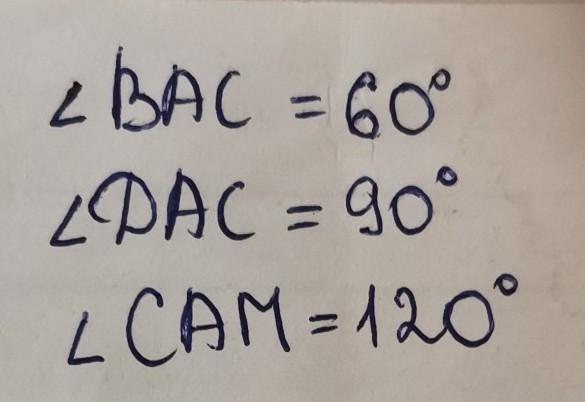 ∠BAC = 60°
∠DAC = 90°
∠CAM = 120°